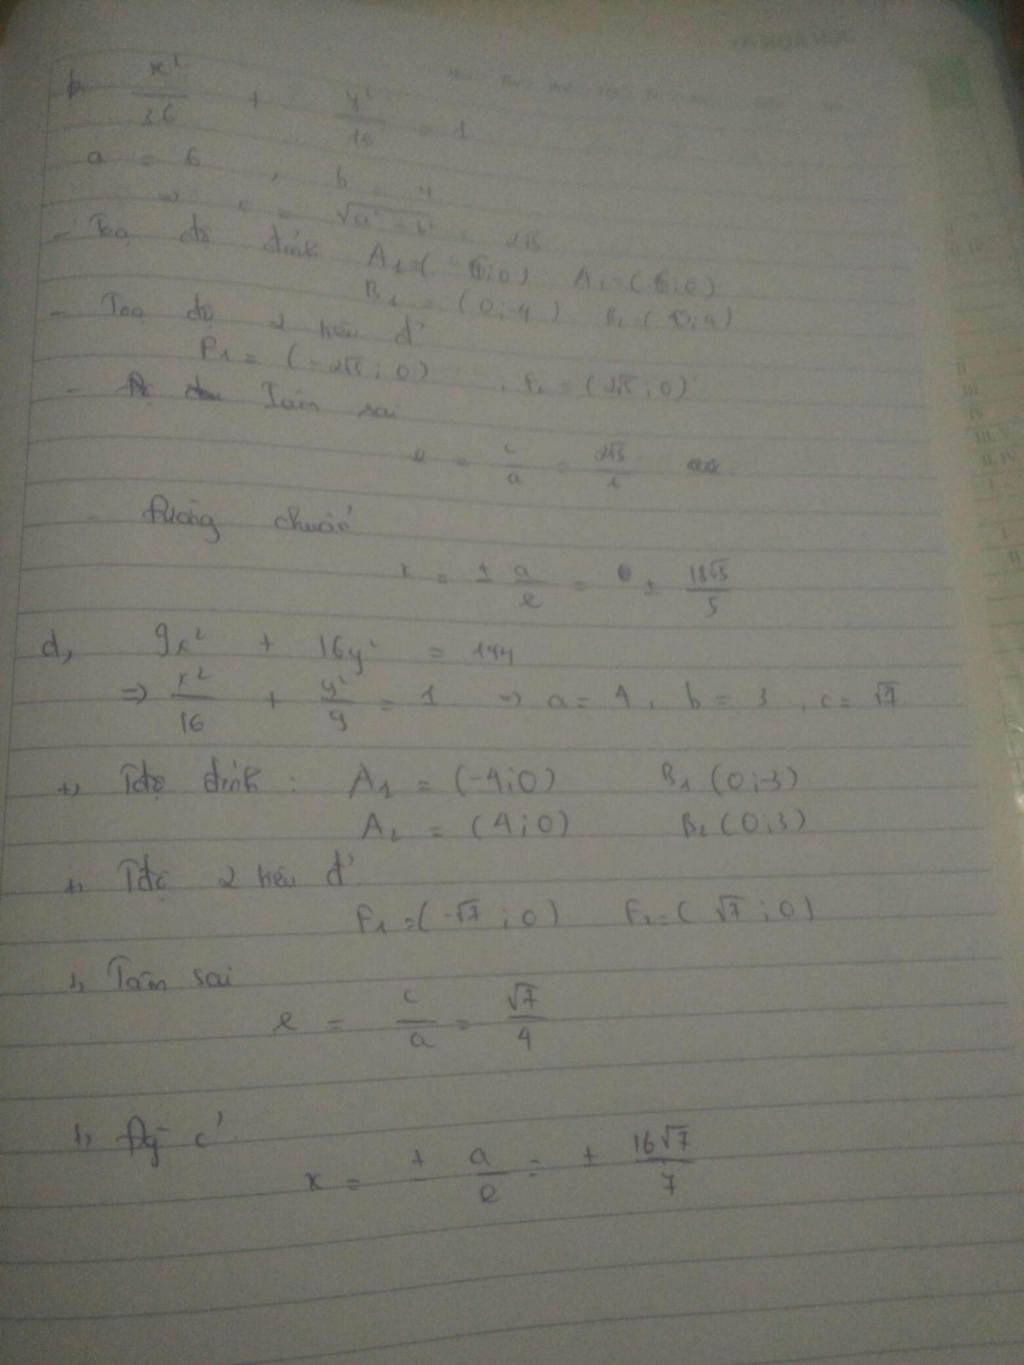 b, x² / 36 + y² / 16 = 1
a = 6 , b = 4
=> c = √(a² - b²) = 2√5
- Toạ độ đỉnh A₁=(-6;0) A₂=(6;0)
B₁ = (0;-4) B₂=(0;4)
- Toạ độ 2 tiêu đ'
F₁ = (-2√5 ; 0) , F₂ = (2√5 ; 0)
- Tâm sai
e = c / a = 2√5 / 6
- Đường chuẩn
x = ± a / e = ± 18√5 / 5
d, 9x² + 16y² = 144
=> x² / 16 + y² / 9 = 1 => a = 4 , b = 3 , c = √7
+, Tđộ đỉnh : A₁ = (-4;0) B₁ (0;-3)
A₂ = (4;0) B₂ (0;3)
+, Tđộ 2 tiêu đ'
F₁ =(-√7 ; 0) F₂ =( √7 ; 0)
+, Tâm sai
e = c / a = √7 / 4
+, Đg c'
x = ± a / e = ± 16√7 / 7